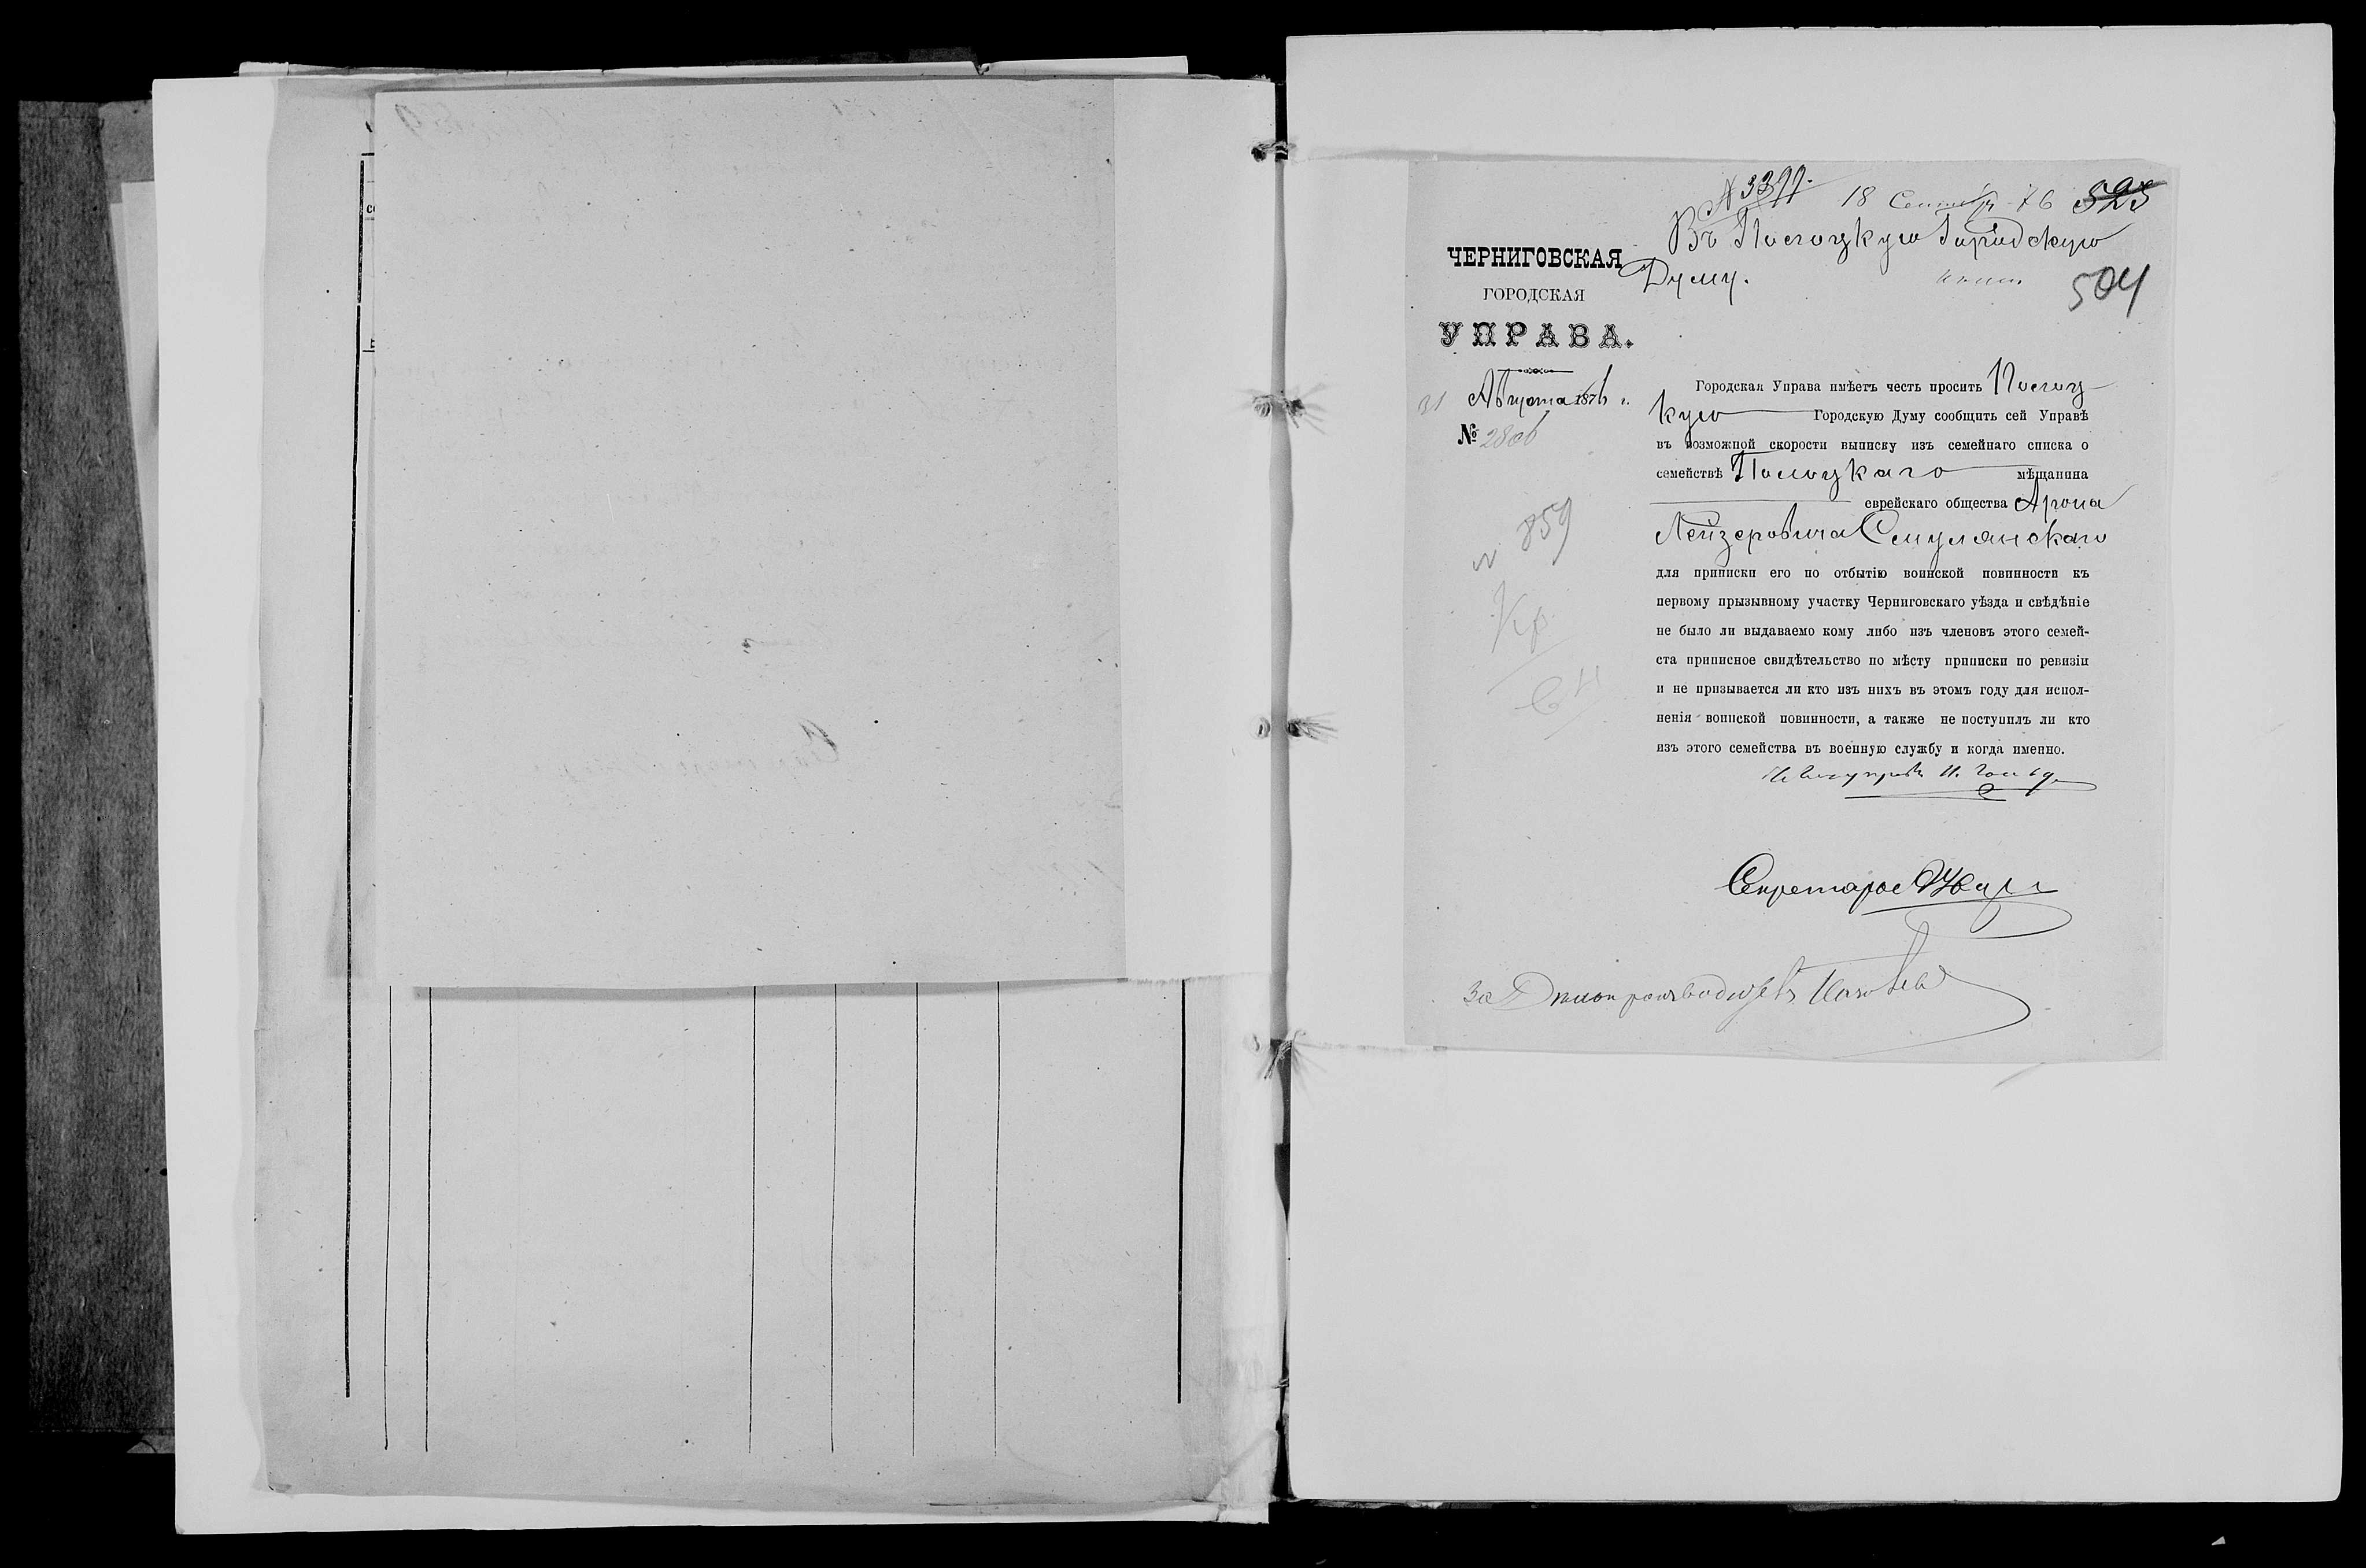 № 3377. 18 Сентяб 76 525
Въ Полоцкую Городскую
Думу.
504
ЧЕРНИГОВСКАЯ
ГОРОДСКАЯ
УПРАВА.
31 Августа 1876 г.
№ 2806
№ 859
Городская Управа имѣетъ честь просить Полоц-
кую Городскую Думу сообщить сей Управѣ
въ возможной скорости выписку изъ семейнаго списка о
семействѣ Полоцкаго мѣщанина
еврейскаго общества Арона
Лейзеровича Смулянскаго
для приписки его по отбытію воинской повинности къ
первому прызывному участку Черниговскаго уѣзда и свѣдѣніе
не было ли выдаваемо кому либо изъ членовъ этого семей-
ста приписное свидѣтельство по мѣсту приписки по ревизіи
и не призывается ли кто изъ нихъ въ этомъ году для испол-
ненія воинской повинности, а также не поступилъ ли кто
изъ этого семейства въ военную службу и когда именно.
Секретарь
За Дѣлопроизводителя